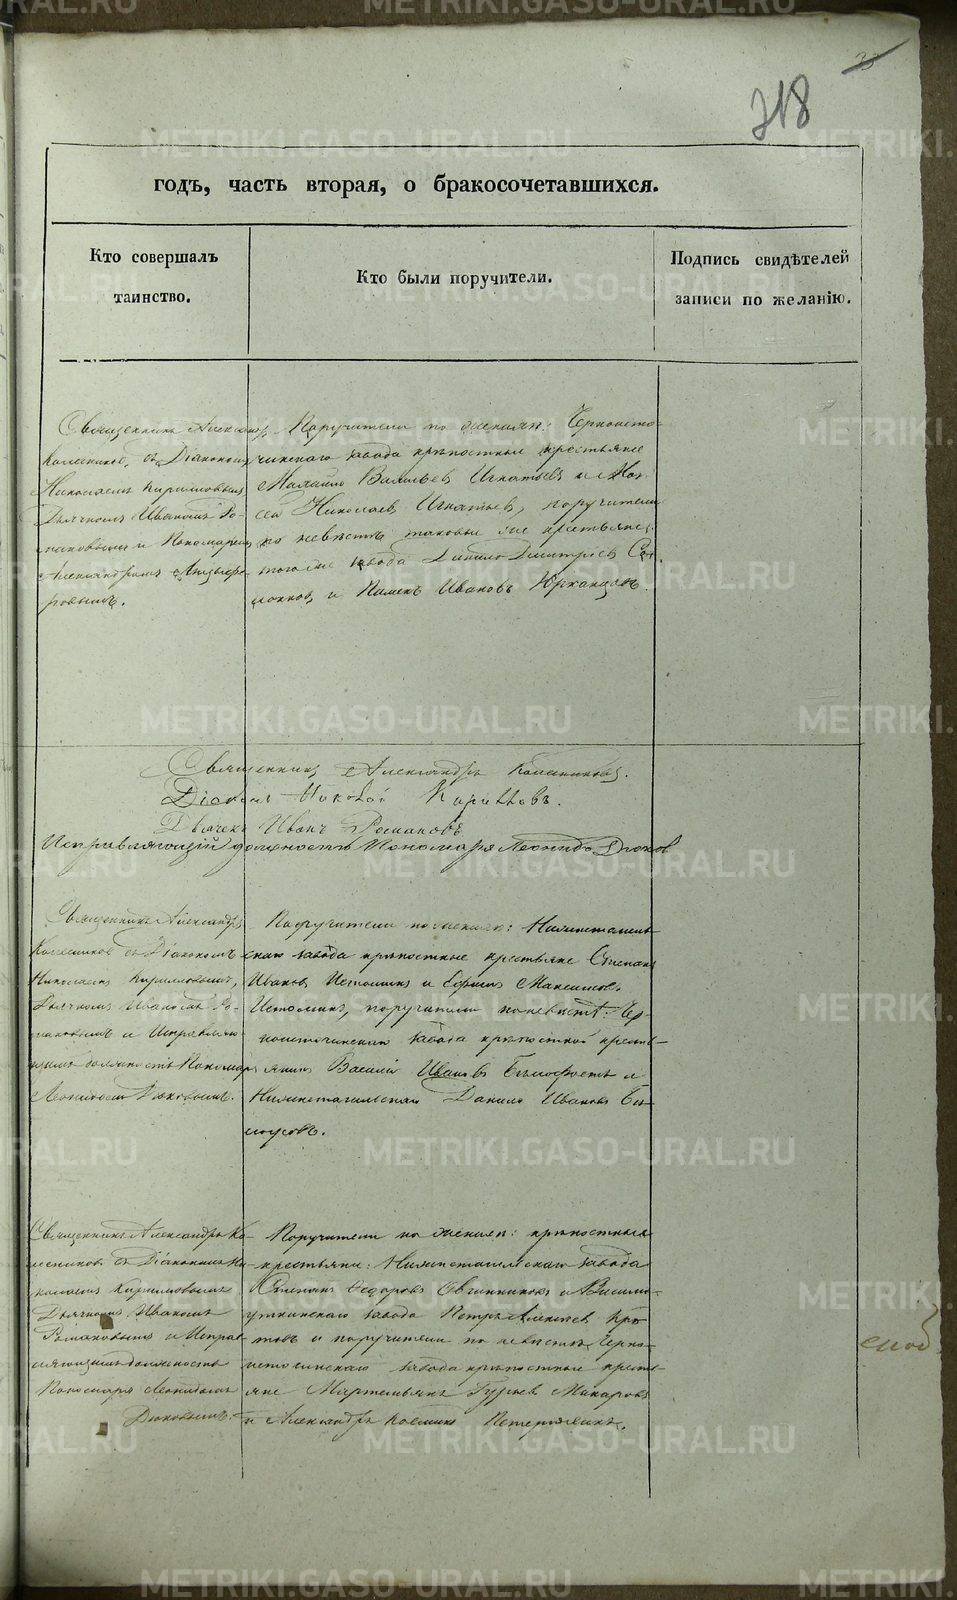 33
318
годъ, часть вторая, о бракосочетавшихся.
Кто совершалъ
таинство.
Кто были поручители.
Подпись свидѣтелей
записи по желанію.
Священникъ Александръ
Колесников, съ Діакономъ
Николаемъ Кирилловымъ
Дьячкомъ Иваномъ Ро-
мановымъ и Пономаремъ
Александромъ
ровымъ.
Поручители по женихѣ: Черноисто-
чинскаго завода крѣпостные крестьяне
Михаило Васильевъ Игнатьевъ и Мои-
сей Николаевъ Игнатьевъ, поручители
по невѣстѣ таковые же крестьяне
того же завода Данило Дмитріевъ
и Пименъ Ивановъ
Священникъ Александръ Колесниковъ.
Діаконъ Николай Кирилловъ.
Дьячекъ Иванъ Романовъ
Исправляющій должность Пономаря Леонидъ Дюков
Священникъ Александръ
Колесников съ Діакономъ
Николаемъ Кирилловымъ,
Дьячкомъ Иваномъ Ро-
мановымъ и Исправляю-
щимъ должность Пономаря
Леонидомъ Дюковымъ.
Поручители по женихѣ: Нижнетагиль-
скаго завода крѣпостные крестьяне Степанъ
Ивановъ Истоминъ и Ефимъ Максимовъ
Истоминъ, поручители по невѣстѣ: Чер-
ноисточинскаго завода крѣпостной кресть-
янинъ Василій Ивановъ и
Нижнетагильскаго Данило Ивановъ Бѣ-
лоусовъ.
Священникъ Александръ Ко-
лесников съ Діакономъ Ни-
колаемъ Кирилловымъ
Дьячкомъ Иваномъ
Романовымъ и Исправ-
ляющимъ должность
Пономаря Леонидомъ
Дюковымъ.
Поручители по женихѣ: крѣпостные
крестьяне: Нижнетагильскаго завода
Степанъ Ѳедоровъ Овчинниковъ и Висимо-
уткинскаго завода Петръ Алексѣевъ
и поручители по невѣстѣ Черно-
источинскаго завода крѣпостные кресть-
яне Мартемьянъ Гурьевъ Макаровъ
и Александръ Козминъ
METRIKI.GASO-URAL.RU